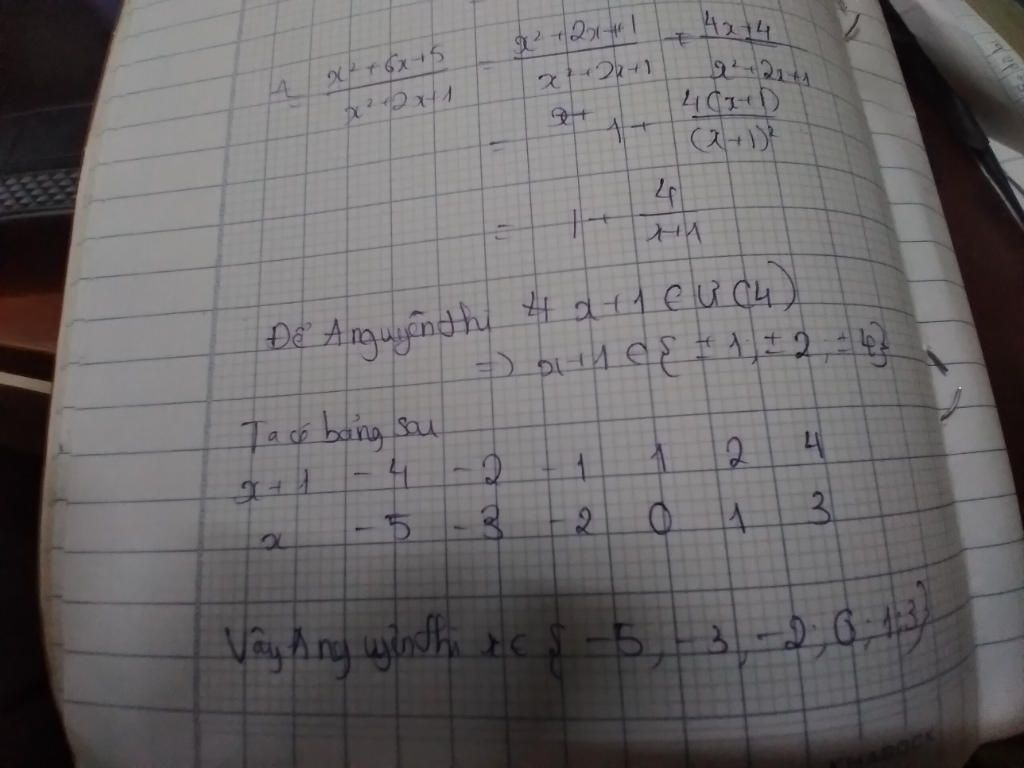 A = \frac{x² + 6x + 5}{x² + 2x + 1} = \frac{x² + 2x + 1}{x² + 2x + 1} + \frac{4x + 4}{x² + 2x + 1}
= 1 + \frac{4(x + 1)}{(x + 1)²}
= 1 + \frac{4}{x + 1}
Để A nguyên thì 4 x + 1 ∈ Ư (4)
=) x + 1 ∈ { ± 1; ± 2; ± 4}
Ta có bảng sau
x + 1 - 4 - 2 - 1 1 2 4
x - 5 - 3 - 2 0 1 3
Vậy A nguyên thì x ∈ { - 5, - 3, - 2; 0; 1; 3}